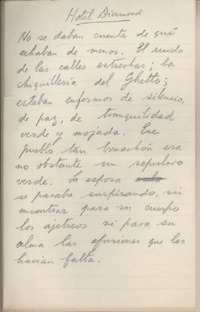 Hotel Diamond
No se daban cuenta de qué
echaban de menos. El ruido
de las calles estrechas; la
chiquillería del Ghetto;
estaban enfermos de silencio,
de paz, de tranquilidad
verde y mojada. Ese
pueblo tan bonachón era
no obstante un sepulcro
verde. La esposa
se pasaba suspirando, sin
encontrar para su cuerpo
los ajetreos ni para su
alma las efusiones que les
hacían falta.